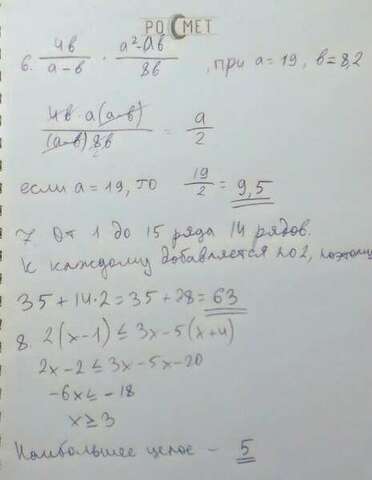 РОСМЕТ
6. 4в/(а-в) · (а²-ав)/8в , при а=19, в=8,2
4в·а(а-в)/((а-в)8в) = а/2
если а=19, то 19/2 = 9,5
7. От 1 до 15 ряда 14 рядов.
К каждому добавляется по 2, поэтому
35+14·2=35+28=63
8. 2(x-1) ≤ 3x-5(x+4)
2x-2 ≤ 3x-5x-20
-6x ≤ -18
x ≥ 3
Наибольшее целое - 5